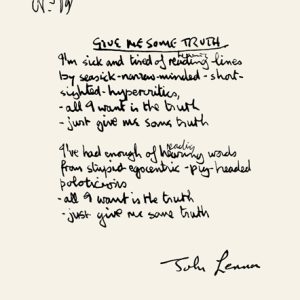 GIVE ME SOME TRUTH
I'm sick and tired of reading hearing lines
by seasick-narrow-minded-short-
sighted-hypercritics,
-all I want is the truth
-just give me some truth
I've had enough of hearing reading words
from stupid-egocentric-pig-headed
-all I want is the truth
-just give me some truth
John Lennon